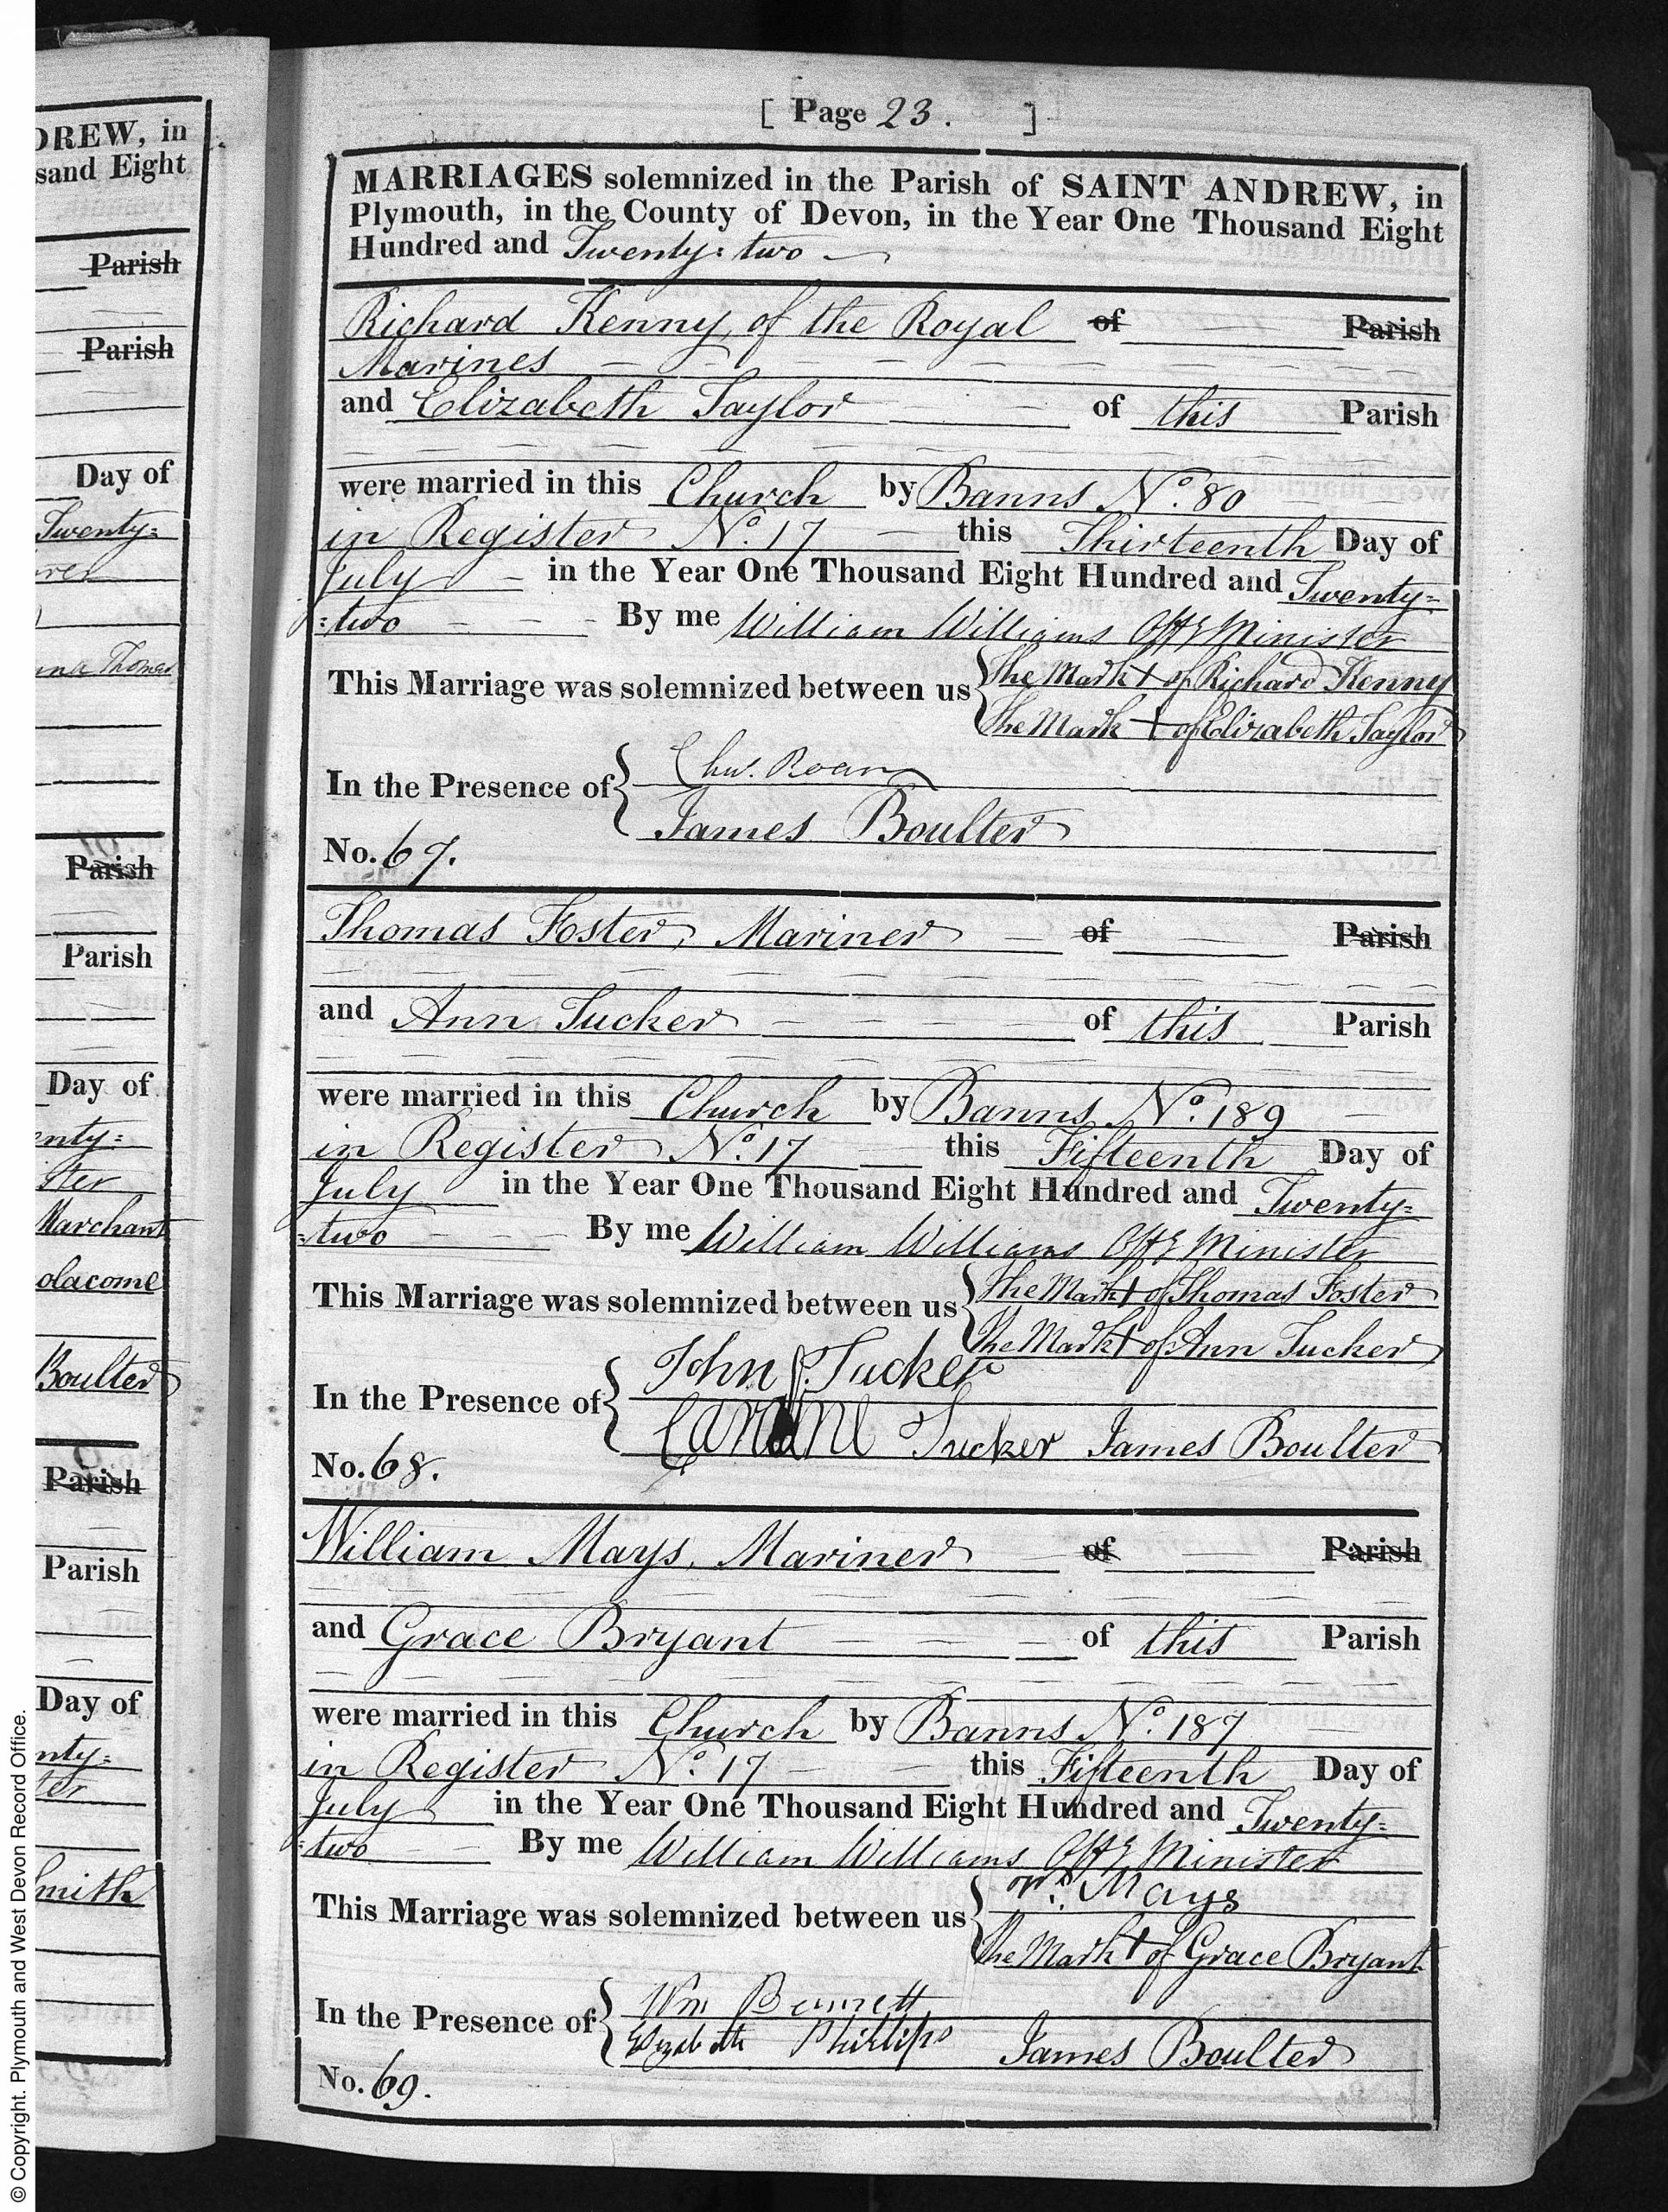 [ Page 23. ]
MARRIAGES solemnized in the Parish of SAINT ANDREW, in
Plymouth, in the County of Devon, in the Year One Thousand Eight
Hundred and Twenty: two
Richard Kenny, of the Royal of Parish
Marines
and Elizabeth Taylor of this Parish
were married in this Church by Banns No. 80
in Register No. 17 this Thirteenth Day of
July in the Year One Thousand Eight Hundred and Twenty=
:two By me William Williams Offg Minister
This Marriage was solemnized between us The Mark + of Richard Kenny
The Mark + of Elizabeth Taylor
In the Presence of
James Boulter
No. 67.
Thomas Foster, Mariner of Parish
and Ann Tucker of this Parish
were married in this Church by Banns No. 189
in Register No. 17 this Fifteenth Day of
July in the Year One Thousand Eight Hundred and Twenty=
=two By me William Williams Offg Minister
This Marriage was solemnized between us The Mark + of Thomas Foster
The Mark + of Ann Tucker
In the Presence of John Tucker
Caroline Tucker James Boulter
No. 68.
William Mays, Mariner of Parish
and Grace Bryant of this Parish
were married in this Church by Banns No. 187
in Register No. 17 this Fifteenth Day of
July in the Year One Thousand Eight Hundred and Twenty=
=two By me William Williams Offg Minister
This Marriage was solemnized between us Mays
The Mark + of Grace Bryant
In the Presence of Wm Bennett
Elizabeth Phillips James Boulter
No. 69.
DREW, in
sand Eight
Parish
Parish
Day of
Twenty=
na Thomas
Parish
Parish
Day of
enty=
ster
Marchant
olacome
Boulter
Parish
Parish
Day of
nty=
ter
Smith
© Copyright. Plymouth and West Devon Record Office.